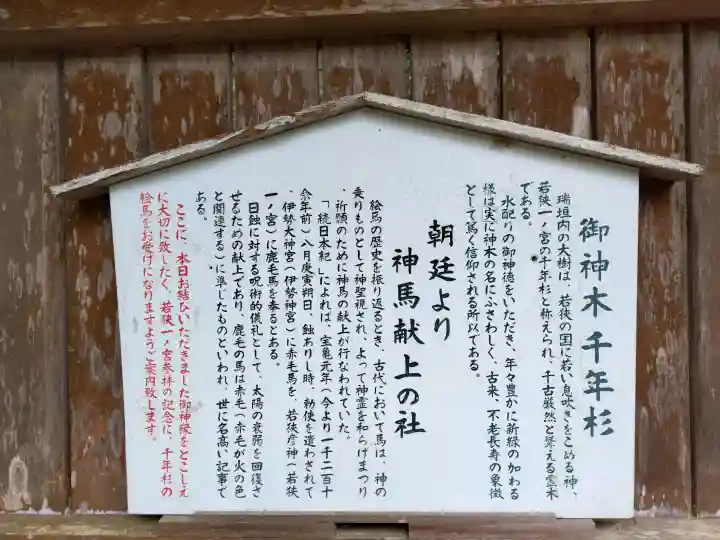 御神木 千年杉
瑞垣内の大樹は、若狭の国に若い息吹きをこめる神、
若狭一ノ宮の千年杉と称えられ、千古厳然と聳える霊木
である。
水配りの御神徳をいただき、年々豊かに新緑の加わる
様は実に神木の名にふさわしく、古来、不老長寿の象徴
として篤く信仰される所以である。
朝廷より
神馬献上の社
絵馬の歴史を振り返るとき、古代において馬は、神の
乗りものとして神聖視され、よって神霊を和らげまつり
、祈願のために神馬の献上が行なわれていた。
「続日本紀」によれば、宝亀元年(今より一千二百十
余年前)八月庚寅朔日、蝕ありし時、勅使を遣わされて
、伊勢大神宮(伊勢神宮)に赤毛馬を、若狭彦神(若狭
一ノ宮)に鹿毛馬を奉るとある。
日蝕に対する呪術的儀礼として、太陽の衰弱を回復さ
せるための献上であり、鹿毛の馬は赤毛(赤毛が火の色
と関連する)に準じたものといわれ、世に名高い記事で
ある。
ここに、本日お結びいただきました御神縁をとこしえ
に大切に致したく、若狭一ノ宮参拝の記念に、千年杉の
絵馬をお受けになりますようご案内致します。